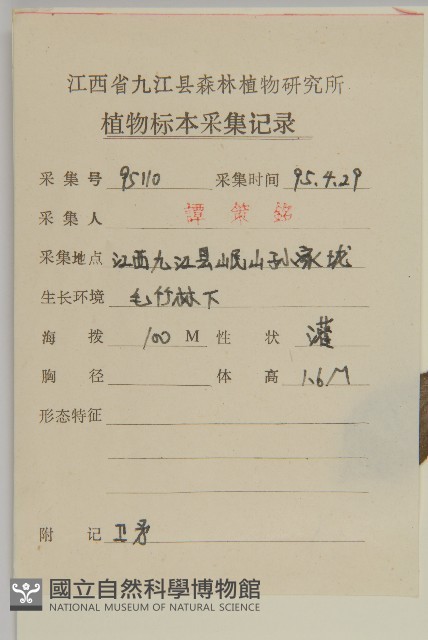 江西省九江县森林植物研究所
植物标本采集记录
采集号 95110 采集时间 95.4.29
采集人 譚策銘
采集地点 江西九江县岷山孙家垅
生长环境 毛竹林下
海拨 100 M 性状 灌
胸径 体高 1.6M
形态特征
附记 卫矛
國立自然科學博物館
NATIONAL MUSEUM OF NATURAL SCIENCE